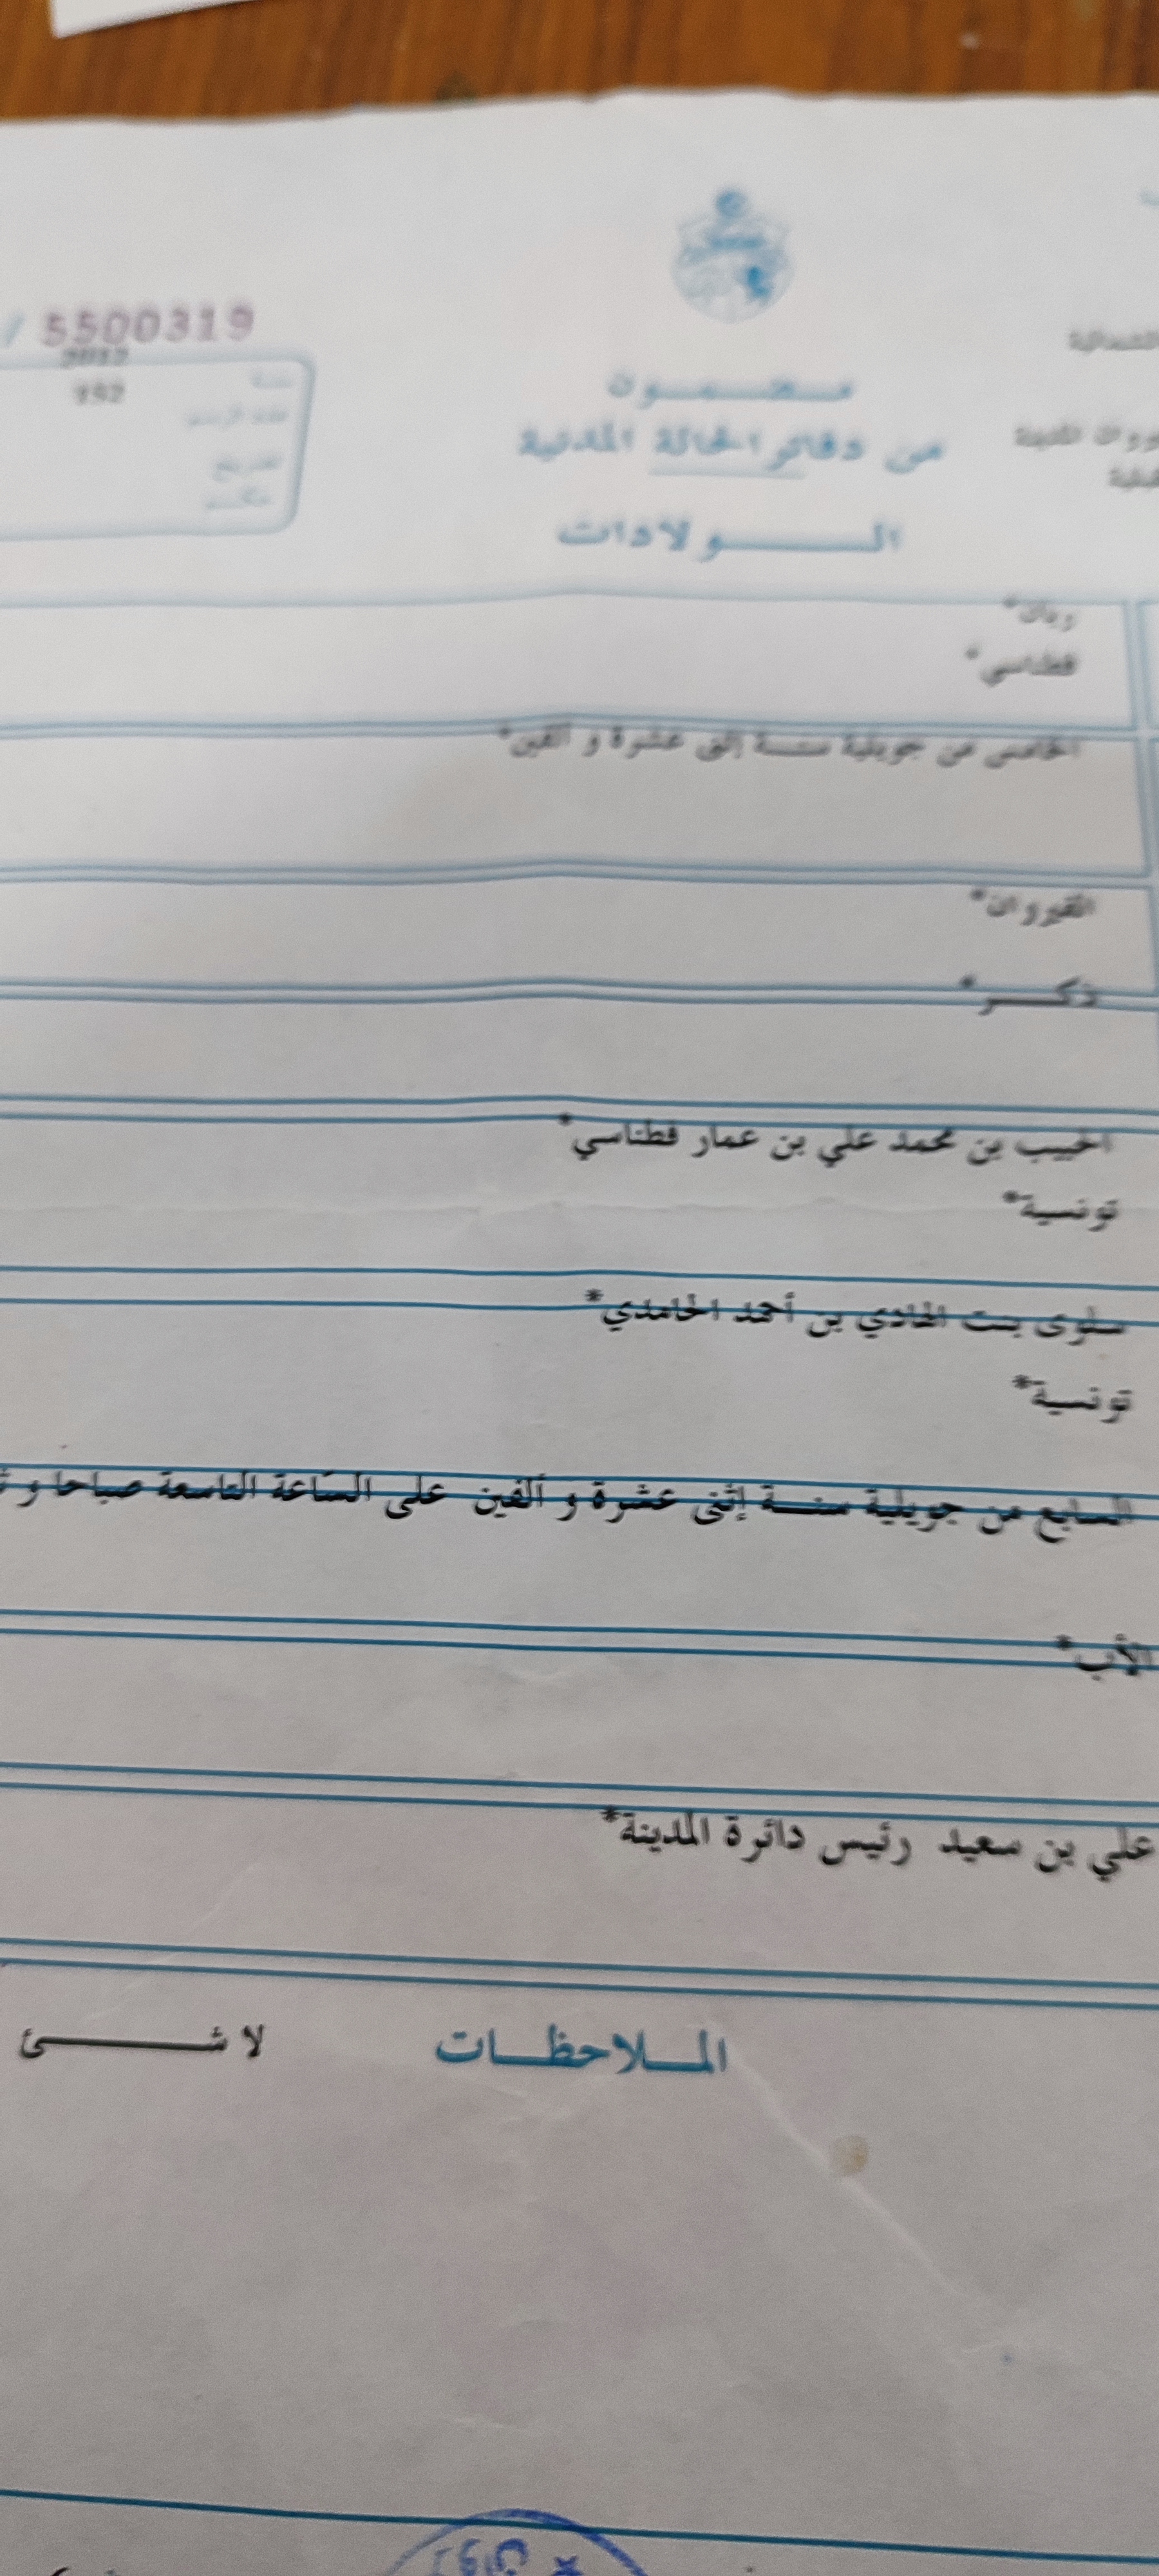 5500319
2012
سنة
992
عدد الرسم
مضمون
من دفاتر الحالة المدنية
الولادات
ريان*
قطناسي*
الخامس من جويلية سنة إثنى عشرة و ألفين*
القيروان*
ذكر*
الحبيب بن محمد علي بن عمار قطناسي*
تونسية*
سلوى بنت الهادي بن أحمد الحامدي*
تونسية*
السابع من جويلية سنة إثنى عشرة و ألفين على الساعة التاسعة صباحا و
الأب*
علي بن سعيد رئيس دائرة المدينة*
الملاحظات لا شئ